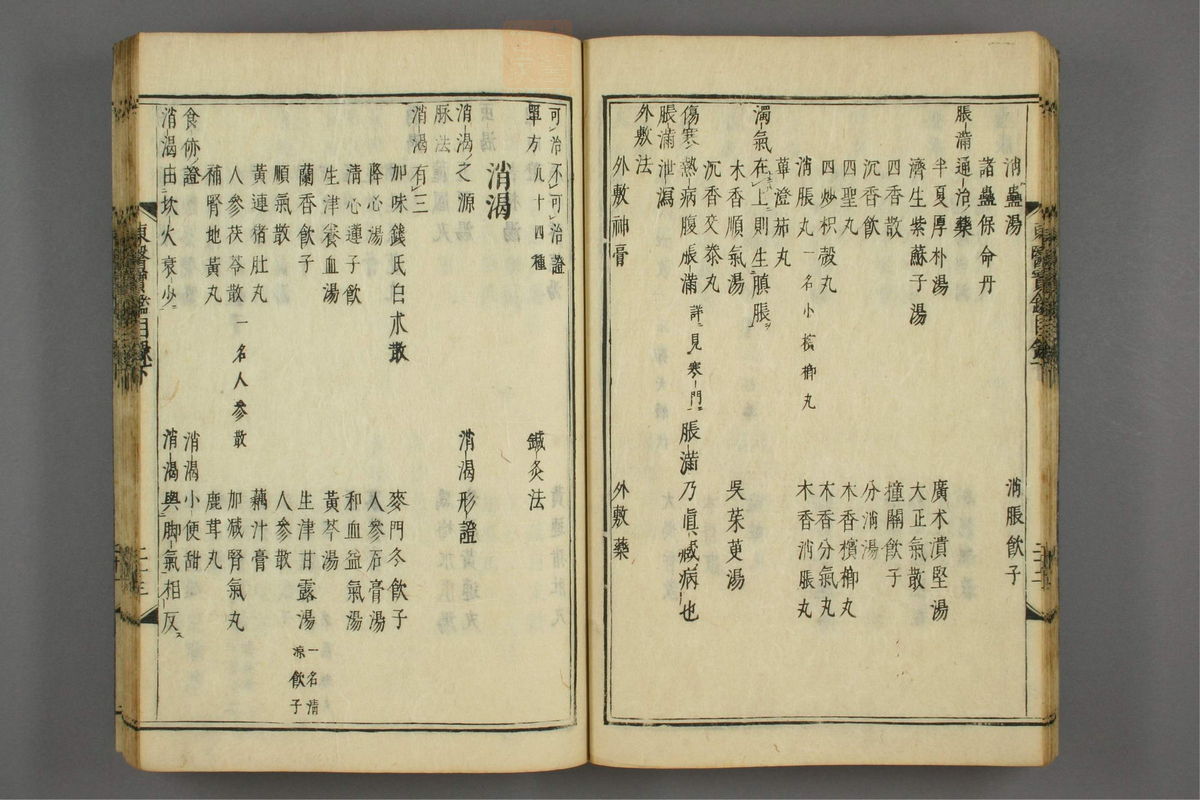 消蠱湯　消脹飲子
諸蠱保命丹
脹滿通治藥
半夏厚朴湯　廣朮潰堅湯
濟生紫蘇子湯　大正氣散
四香散　撞關飲子
沉香飲　分消湯
四聖丸　木香檳榔丸
四炒枳殼丸　木香分氣丸
消脹丸　一名小檳榔丸　木香消脹丸
蓽澄茄丸
濁氣在上則生䐜脹
木香順氣湯　吳茱萸湯
沉香交泰丸
傷寒熱病腹脹滿　詳見寒門　脹滿乃眞臟病也
脹滿泄瀉
外敷法
外敷神膏　外敷藥
可治不可治證
單方　凡十四種　鍼灸法
消渴
消渴之源　消渴形證
脉法
消渴有三
加味錢氏白朮散　麥門冬飲子
降心湯　人參石膏湯
清心蓮子飲　和血益氣湯
生津養血湯　黃芩湯
蘭香飲子　生津甘露湯　一名清涼飲子
順氣散　人參散
黃連猪肚丸　藕汁膏
人參茯苓散　一名人參散　加減腎氣丸
補腎地黃丸　鹿茸丸
食㑊證　消渴小便甜
消渴由坎火衰少　消渴與脚氣相反
東醫寶鑑目錄下